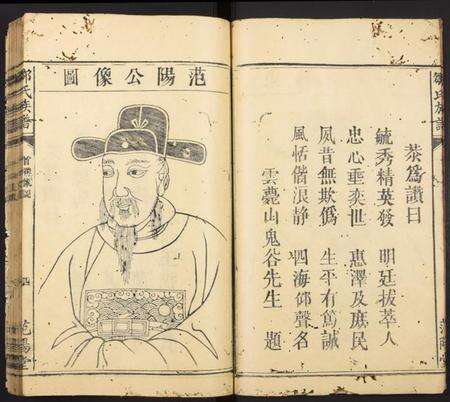 鄒氏族譜
恭爲讚曰
毓秀精英發 明廷拔萃人
忠心垂奕世 惠澤及庶民
夙昔無欺僞 生平有篤誠
風恬偕浪静 四海仰聲名
雲夢山鬼谷先生 題
范陽公像圖
鄒氏族譜
四
范陽堂